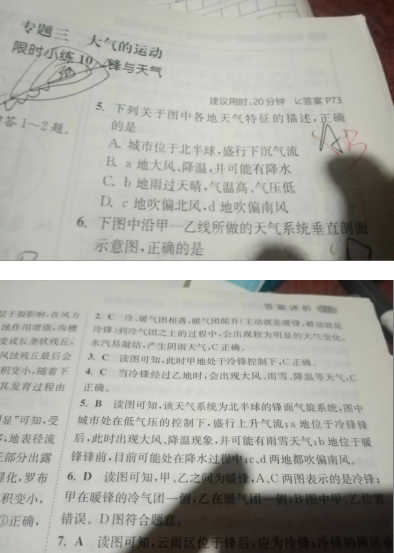 专题三 大气的运动
限时小练10 锋与天气
建议用时:20分钟 答案P73
答1～2题。
5. 下列关于图中各地天气特征的描述,正确
的是
A. 城市位于北半球,盛行下沉气流
B. a 地大风、降温,并可能有降水
C. b 地雨过天晴,气温高、气压低
D. c 地吹偏北风,d 地吹偏南风
6. 下图中沿甲—乙线所做的天气系统垂直剖面
示意图,正确的是
B
答案详析
2. C 冷、暖气团相遇,暖气团爬升(主动就是暖锋,被动就是
冷锋)到冷气团之上的过程中,会出现较为明显的天气变化,
水汽易凝结,产生阴雨天气,C正确。
3. C 读图可知,此时甲地处于冷锋控制下,C正确。
4. C 当冷锋经过乙地时,会出现大风、雨雪、降温等天气,C
正确。
5. B 读图可知,该天气系统为北半球的锋面气旋系统,图中
城市处在低气压的控制下,盛行上升气流;a 地位于冷锋锋
后,此时出现大风、降温现象,并可能有雨雪天气;b 地位于暖
锋锋前,目前可能处在降水过程中;c、d 两地都吹偏南风。
6. D 读图可知,甲、乙之间为暖锋,A、C 两图表示的是冷锋;
甲在暖锋的冷气团一侧,乙在暖气团一侧,B图中甲、乙位置
错误。D图符合题意。
7. A 读图可知,云雨区位于锋后,应为冷锋;冷锋的雨区在
受于裂影响,在风力
蚀作用增强,沟槽
变成长垄状残丘,
风蚀残丘最后会
积变小,随着下
其发育过程由
明显”可知,受
,地表径流
部分出露
绿化,罗布
积变小,
③正确,